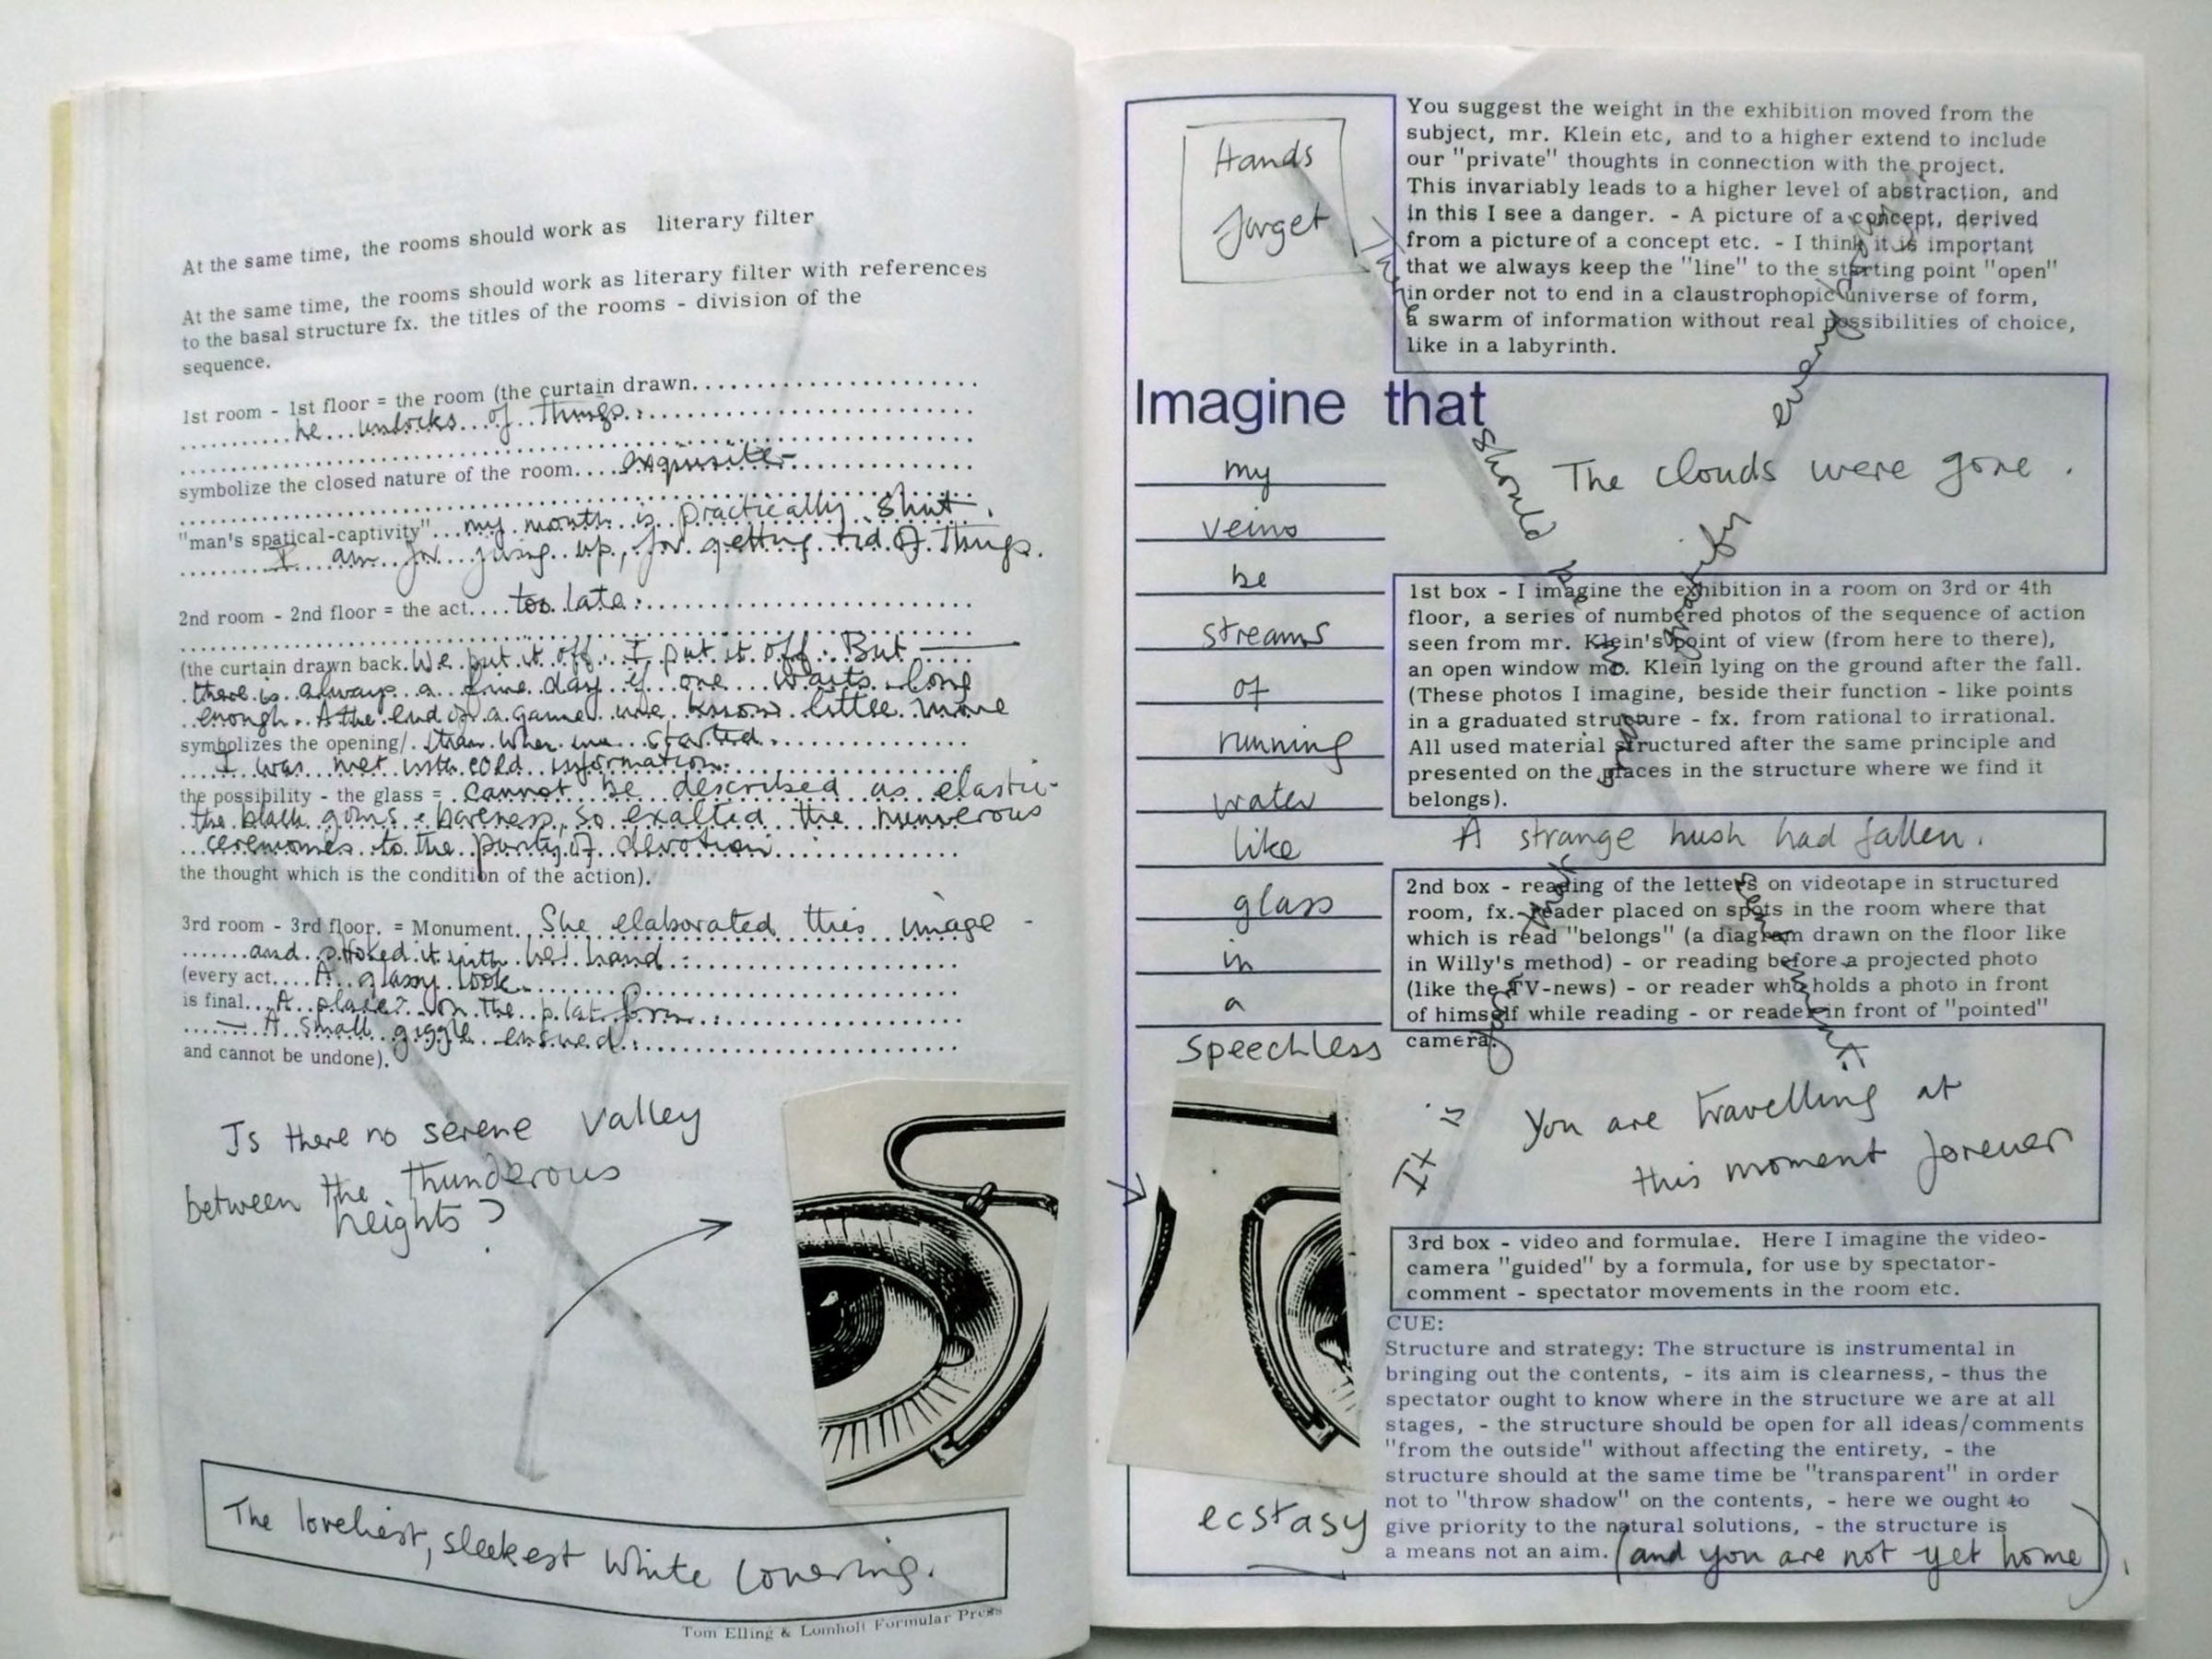 At the same time, the rooms should work as literary filter
At the same time, the rooms should work as literary filter with references
to the basal structure fx. the titles of the rooms - division of the
sequence.
1st room - 1st floor = the room (the curtain drawn..............................
...........he...unlocks...of things.:..............................
symbolize the closed nature of the room....exquisite-................
"man's spatical-captivity"...my mouth is practically shut.
..........I am for giving up, for getting rid of things.
2nd room - 2nd floor = the act....too late:..............................
(the curtain drawn back. We put it off. I put it off. But ———
there is always a fine day if one waits long
enough. At the end of a game we know little more
symbolizes the opening/. than when we started..............
....I was met with cold information..............
the possibility - the glass = cannot be described as elastic-
the black gowns & bareness, so exalted the numerous
...ceremonies to the purity of devotion................
the thought which is the condition of the action).
3rd room - 3rd floor. = Monument. She elaborated this image -
.......and stroked it with her hand.:..............
(every act....A glassy look..............
is final...A place? on the platform.:..............
.....— A small giggle ensued.:..............
and cannot be undone).
Is there no serene valley
between the thunderous
heights?
The loveliest, sleekest white covering.
Tom Elling & Lomholt Formular Press
Hands
forget
You suggest the weight in the exhibition moved from the
subject, mr. Klein etc, and to a higher extend to include
our "private" thoughts in connection with the project.
This invariably leads to a higher level of abstraction, and
in this I see a danger. - A picture of a concept, derived
from a picture of a concept etc. - I think it is important
that we always keep the "line" to the starting point "open"
in order not to end in a claustrophopic universe of form,
a swarm of information without real possibilities of choice,
like in a labyrinth.
Imagine that
my
veins
be
streams
of
running
water
like
glass
in
a
speechless
ecstasy
should
gravity
The clouds were gone.
1st box - I imagine the exhibition in a room on 3rd or 4th
floor, a series of numbered photos of the sequence of action
seen from mr. Klein's point of view (from here to there),
an open window mr. Klein lying on the ground after the fall.
(These photos I imagine, beside their function - like points
in a graduated structure - fx. from rational to irrational.
All used material structured after the same principle and
presented on the places in the structure where we find it
belongs).
A strange hush had fallen.
2nd box - reading of the letters on videotape in structured
room, fx. reader placed on spots in the room where that
which is read "belongs" (a diagram drawn on the floor like
in Willy's method) - or reading before a projected photo
(like the TV-news) - or reader who holds a photo in front
of himself while reading - or reader in front of "pointed"
camera.
It is
You are travelling at
this moment forever
3rd box - video and formulae. Here I imagine the video-
camera "guided" by a formula, for use by spectator-
comment - spectator movements in the room etc.
CUE:
Structure and strategy: The structure is instrumental in
bringing out the contents, - its aim is clearness, - thus the
spectator ought to know where in the structure we are at all
stages, - the structure should be open for all ideas/comments
"from the outside" without affecting the entirety, - the
structure should at the same time be "transparent" in order
not to "throw shadow" on the contents, - here we ought to
give priority to the natural solutions, - the structure is
a means not an aim. (and you are not yet home).